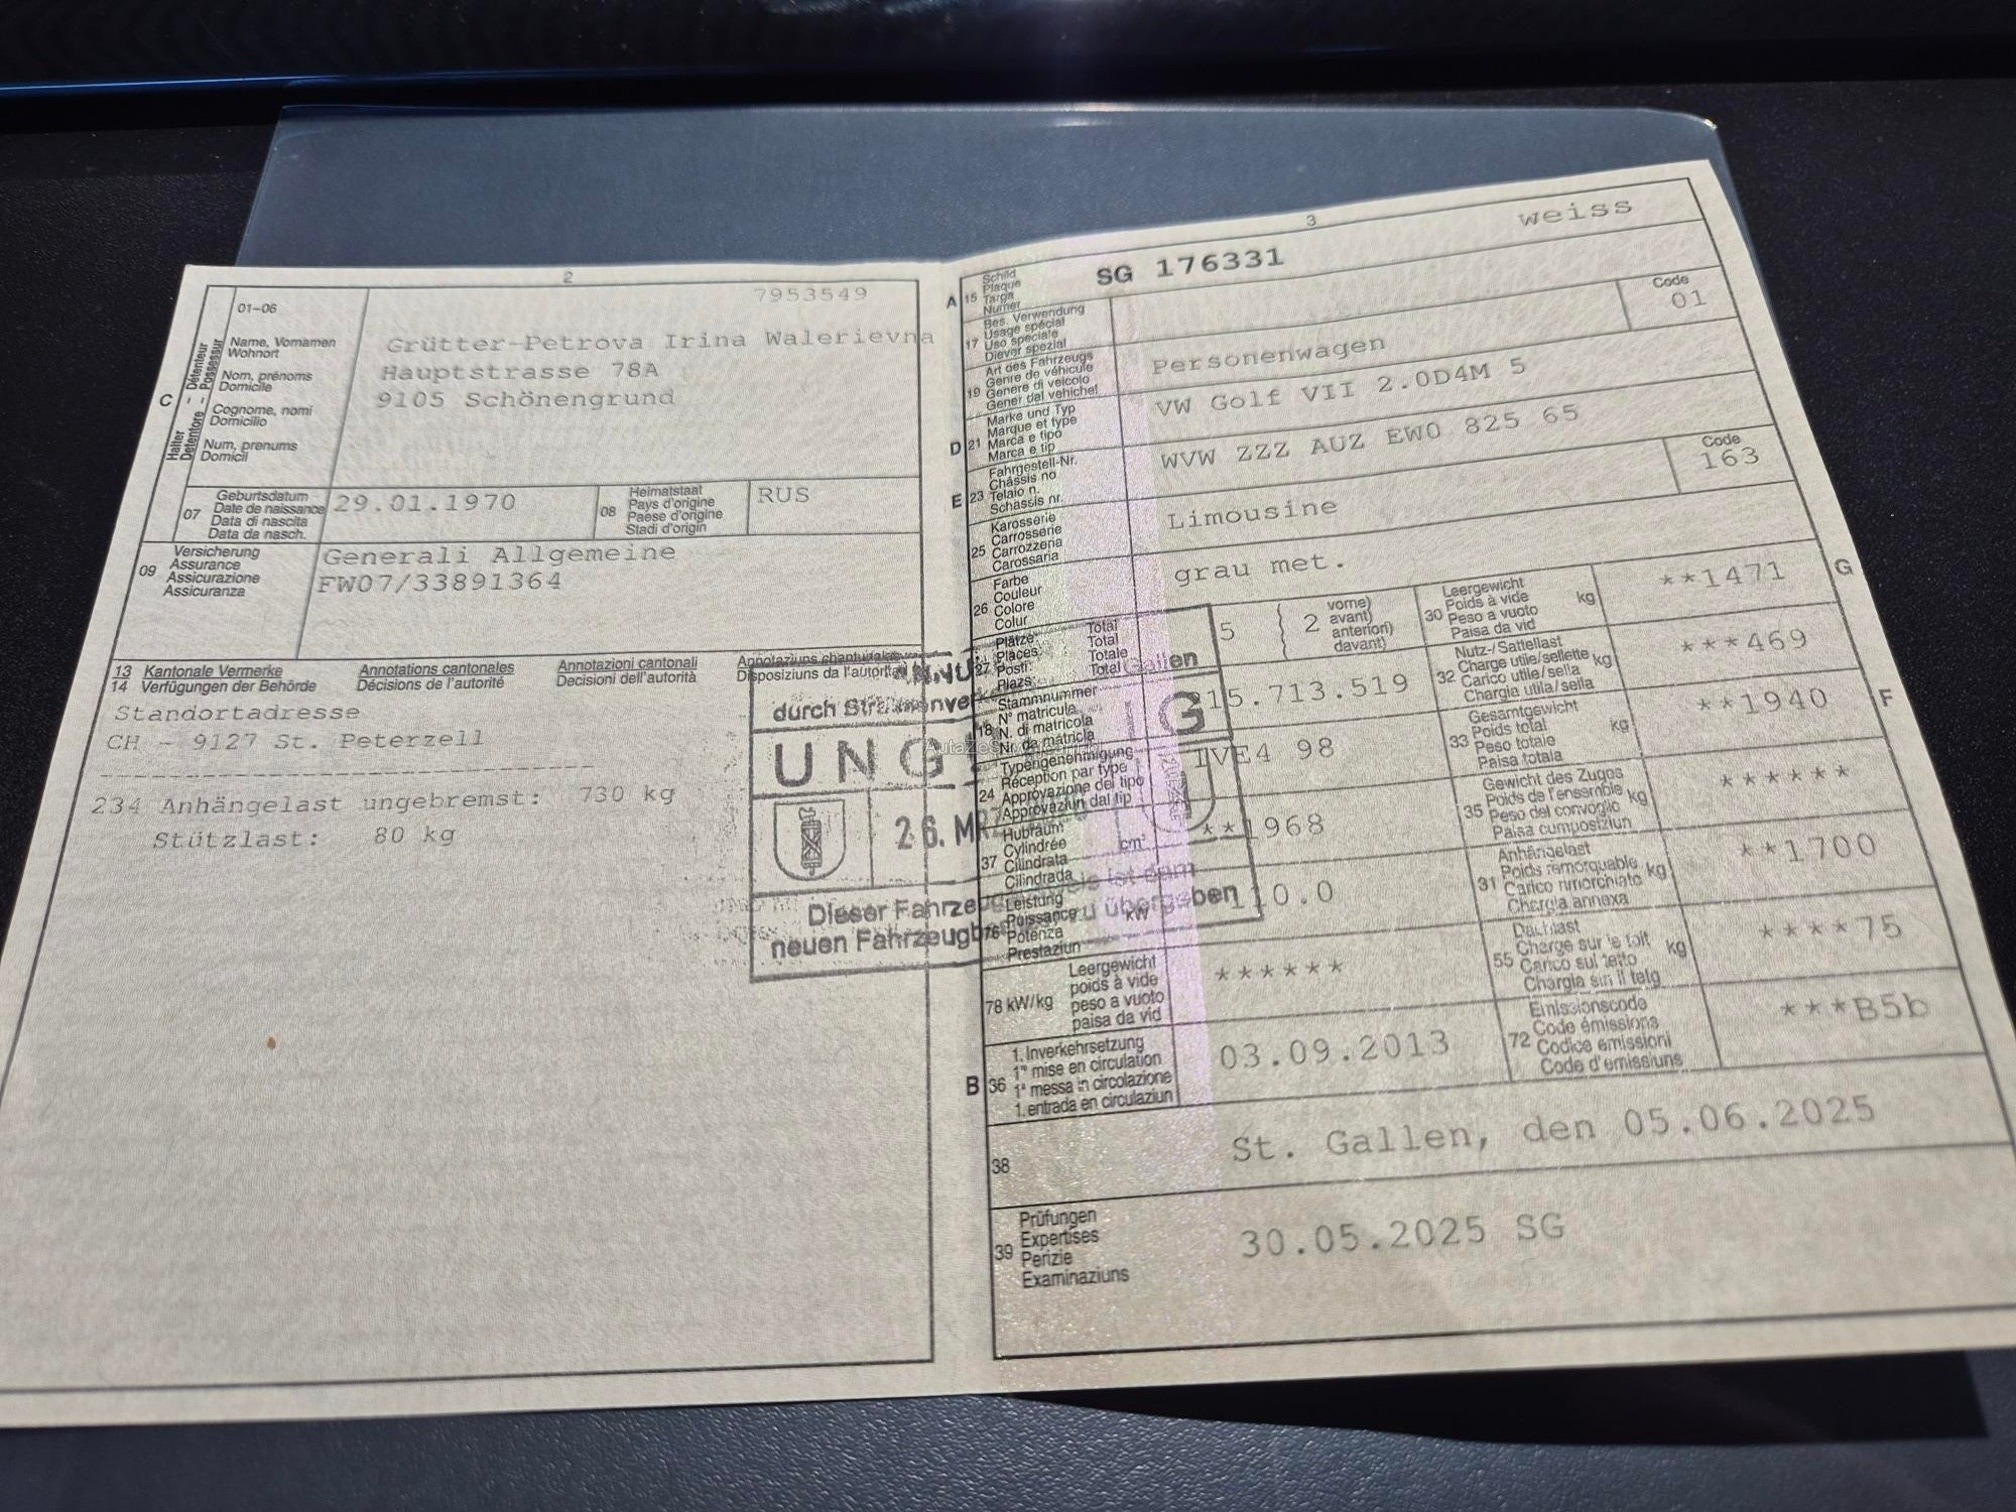 2
7953549
01-06
C
Halter - Détenteur
Detentore - Possessur
Name, Vornamen
Wohnort
Nom, prénoms
Domicile
Cognome, nomi
Domicilio
Num, prenums
Domicil
Grütter-Petrova Irina Walerievna
Hauptstrasse 78A
9105 Schönengrund
07
Geburtsdatum
Date de naissance
Data di nascita
Data da nasch.
29.01.1970
08
Heimatstaat
Pays d'origine
Paese d'origine
Stadi d'origin
RUS
09
Versicherung
Assurance
Assicurazione
Assicuranza
Generali Allgemeine
FW07/33891364
13 Kantonale Vermerke
14 Verfügungen der Behörde
Annotations cantonales
Décisions de l'autorité
Annotazioni cantonali
Decisioni dell'autorità
Annotaziuns chantunalas
Disposiziuns da l'autorit
Standortadresse
CH - 9127 St. Peterzell
234 Anhängelast ungebremst: 730 kg
Stützlast: 80 kg
durch
Gallen
UNG
G
26. MRZ
Dieser Fahrze ist dem
neuen Fahrzeug zu übergeben
3
weiss
A
15
Schild
Plaque
Targa
Numer
SG 176331
17
Bes. Verwendung
Usage spécial
Uso speciale
Diever spezial
Code
01
19
Art des Fahrzeugs
Genre de véhicule
Genere di veicolo
Gener dal vehichel
Personenwagen
D
21
Marke und Typ
Marque et type
Marca e tipo
Marca e tip
VW Golf VII 2.0D4M 5
E
23
Fahrgestell-Nr.
Châssis no
Telaio n.
Schassis nr.
WVW ZZZ AUZ EW0 825 65
25
Karosserie
Carrosserie
Carrozzeria
Carossaria
Limousine
Code
163
26
Farbe
Couleur
Colore
Colur
grau met.
27
Plätze Total
Places Total
Posti: Totale
Plazs: Total
5
2
vorne)
avant)
anteriori)
davant)
G
30
Leergewicht
Poids à vide
Peso a vuoto
Paisa da vid
kg
**1471
18
Stammnummer
N° matricule
N. di matricola
Nr. da matricla
15.713.519
32
Nutz-/Sattellast
Charge utile/sellette
Carico utile/sella
Chargia utila/sella
kg
***469
24
Typengenehmigung
Réception par type
Approvazione del tipo
Approvaziun dal tip
1VE4 98
F
33
Gesamtgewicht
Poids total
Peso totale
Paisa totala
kg
**1940
37
Hubraum
Cylindrée
Cilindrata
Cilindrada
cm³
**1968
35
Gewicht des Zuges
Poids de l'ensemble
Peso del convoglio
Paisa cumposiziun
kg
******
76
Leistung
Puissance
Potenza
Prestaziun
kW
110.0
31
Anhängelast
Poids remorquable
Carico rimorchiato
Chargia annexa
kg
**1700
78 kW/kg
Leergewicht
poids à vide
peso a vuoto
paisa da vid
******
55
Dachlast
Charge sur le toit
Carico sul tetto
Chargia sin il tetg
kg
****75
B
36
1. Inverkehrsetzung
1re mise en circulation
1a messa in circolazione
1. entrada en circulaziun
03.09.2013
72
Emissionscode
Code émissions
Codice emissioni
Code d'emissiuns
***B5b
38
St. Gallen, den 05.06.2025
39
Prüfungen
Expertises
Perizie
Examinaziuns
30.05.2025 SG